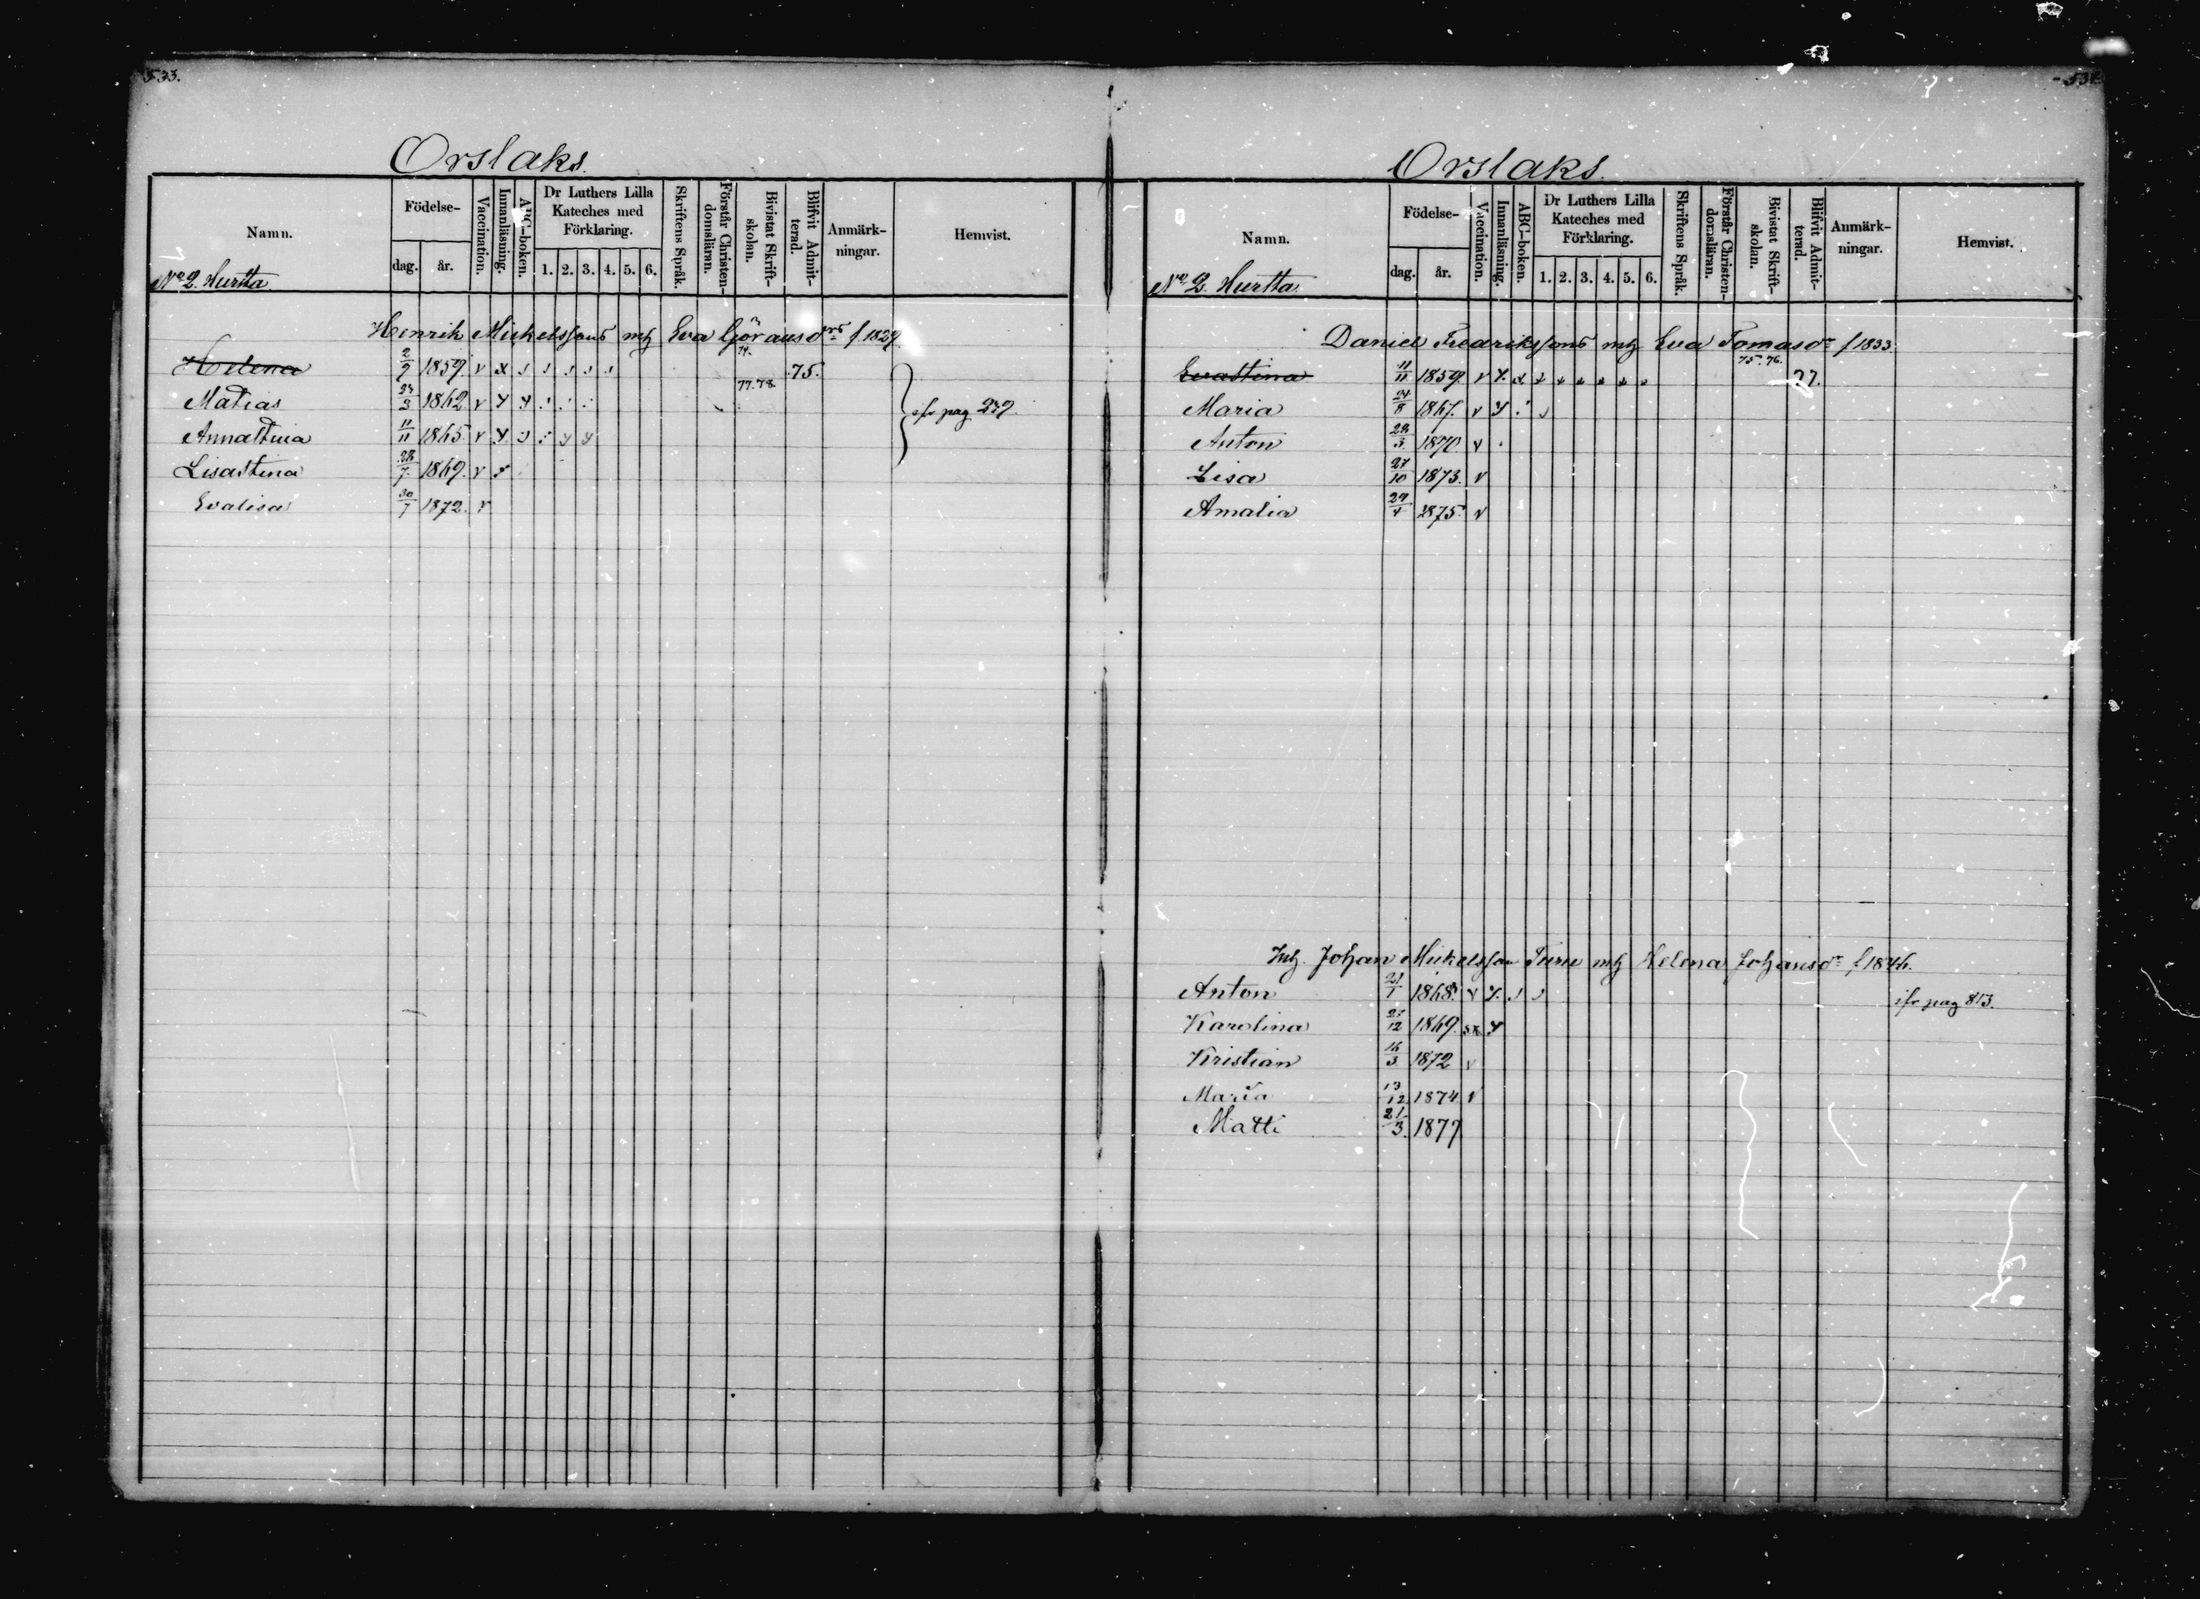 533.
Orslaks.
Namn.
Födelse-
dag.
år.
Vaccination.
Innanläsning.
ABC-boken.
Dr Luthers Lilla Kateches med Förklaring.
1. 2. 3. 4. 5. 6.
Skriftens Språk.
Förstår Christendomsläran.
Bivistat Skriftskolan.
Blifvit Admitterad.
Anmärkningar.
Hemvist.
No 2. Hurtta
Henrik Mickelssons
Eva Göransdr f 1829.
Helena 2/9 1859. v x 74. 75.
Matias 1862 v 77. 78.
Annastina 11/11 1865 v
Lisastina 28/7 1869. v
Evalisa 30/7 1872. v
pag 239
534.
Orslaks.
Namn.
Födelse-
dag.
år.
Vaccination.
Innanläsning.
ABC-boken.
Dr Luthers Lilla Kateches med Förklaring.
1. 2. 3. 4. 5. 6.
Skriftens Språk.
Förstår Christendomsläran.
Bivistat Skriftskolan.
Blifvit Admitterad.
Anmärkningar.
Hemvist.
No 2. Hurtta.
Daniel Fredrikssons
Eva Tomasdr f 1833.
Evastina 11/11 1859. v 75. 76. 77.
Maria 24/8 1867. v
Anton 28/3 1870. v
Lisa 27/10 1873. v
Amalia 29/4 1875. v
Johan Mickelsson
Helena Johansdr f 1846.
Anton 1868. v
pag 813.
Karolina 1869.
Kristian 16/3 1872 v
Maria 13/12 1874 v
Matti 21/3. 1877